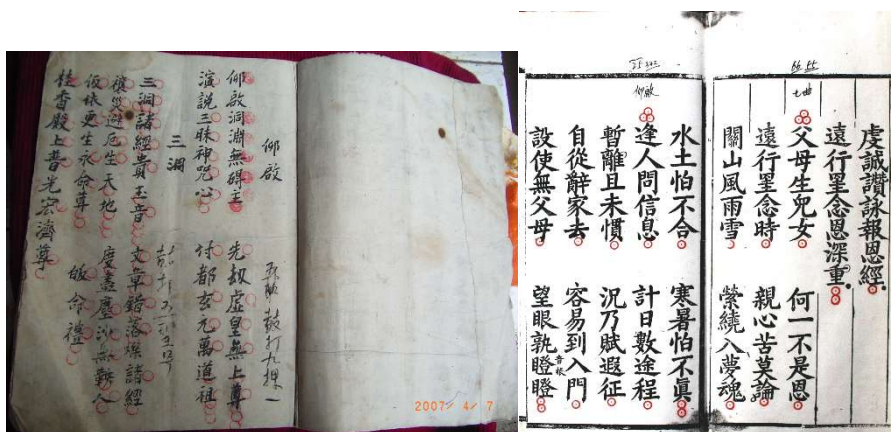 仰啟
仰啟洞淵無碍主 先劫虛皇無上尊
演說三昧神咒心 付都玄元萬道祖
三洞
三洞諸經貴玉音 文章錯落燦諸經
禳災避厄生天地 度盡塵沙無數人
皈依更生永命尊 皈命禮
桂香殿上普光宏濟尊
2007/ 4/ 7
虔誠讚詠報恩經
遠行罣念恩深重
七曲
父母生兒女 何一不是恩
遠行罣念時 親心苦莫論
關山風雨雪 縈繞入夢魂
仰啟
水土怕不合 寒暑怕不眞
逢人問信息 計日數途程
暫離且未慣 況乃賦遐征
自從辭家去 容易到入門
設使無父母 望眼孰瞪瞪